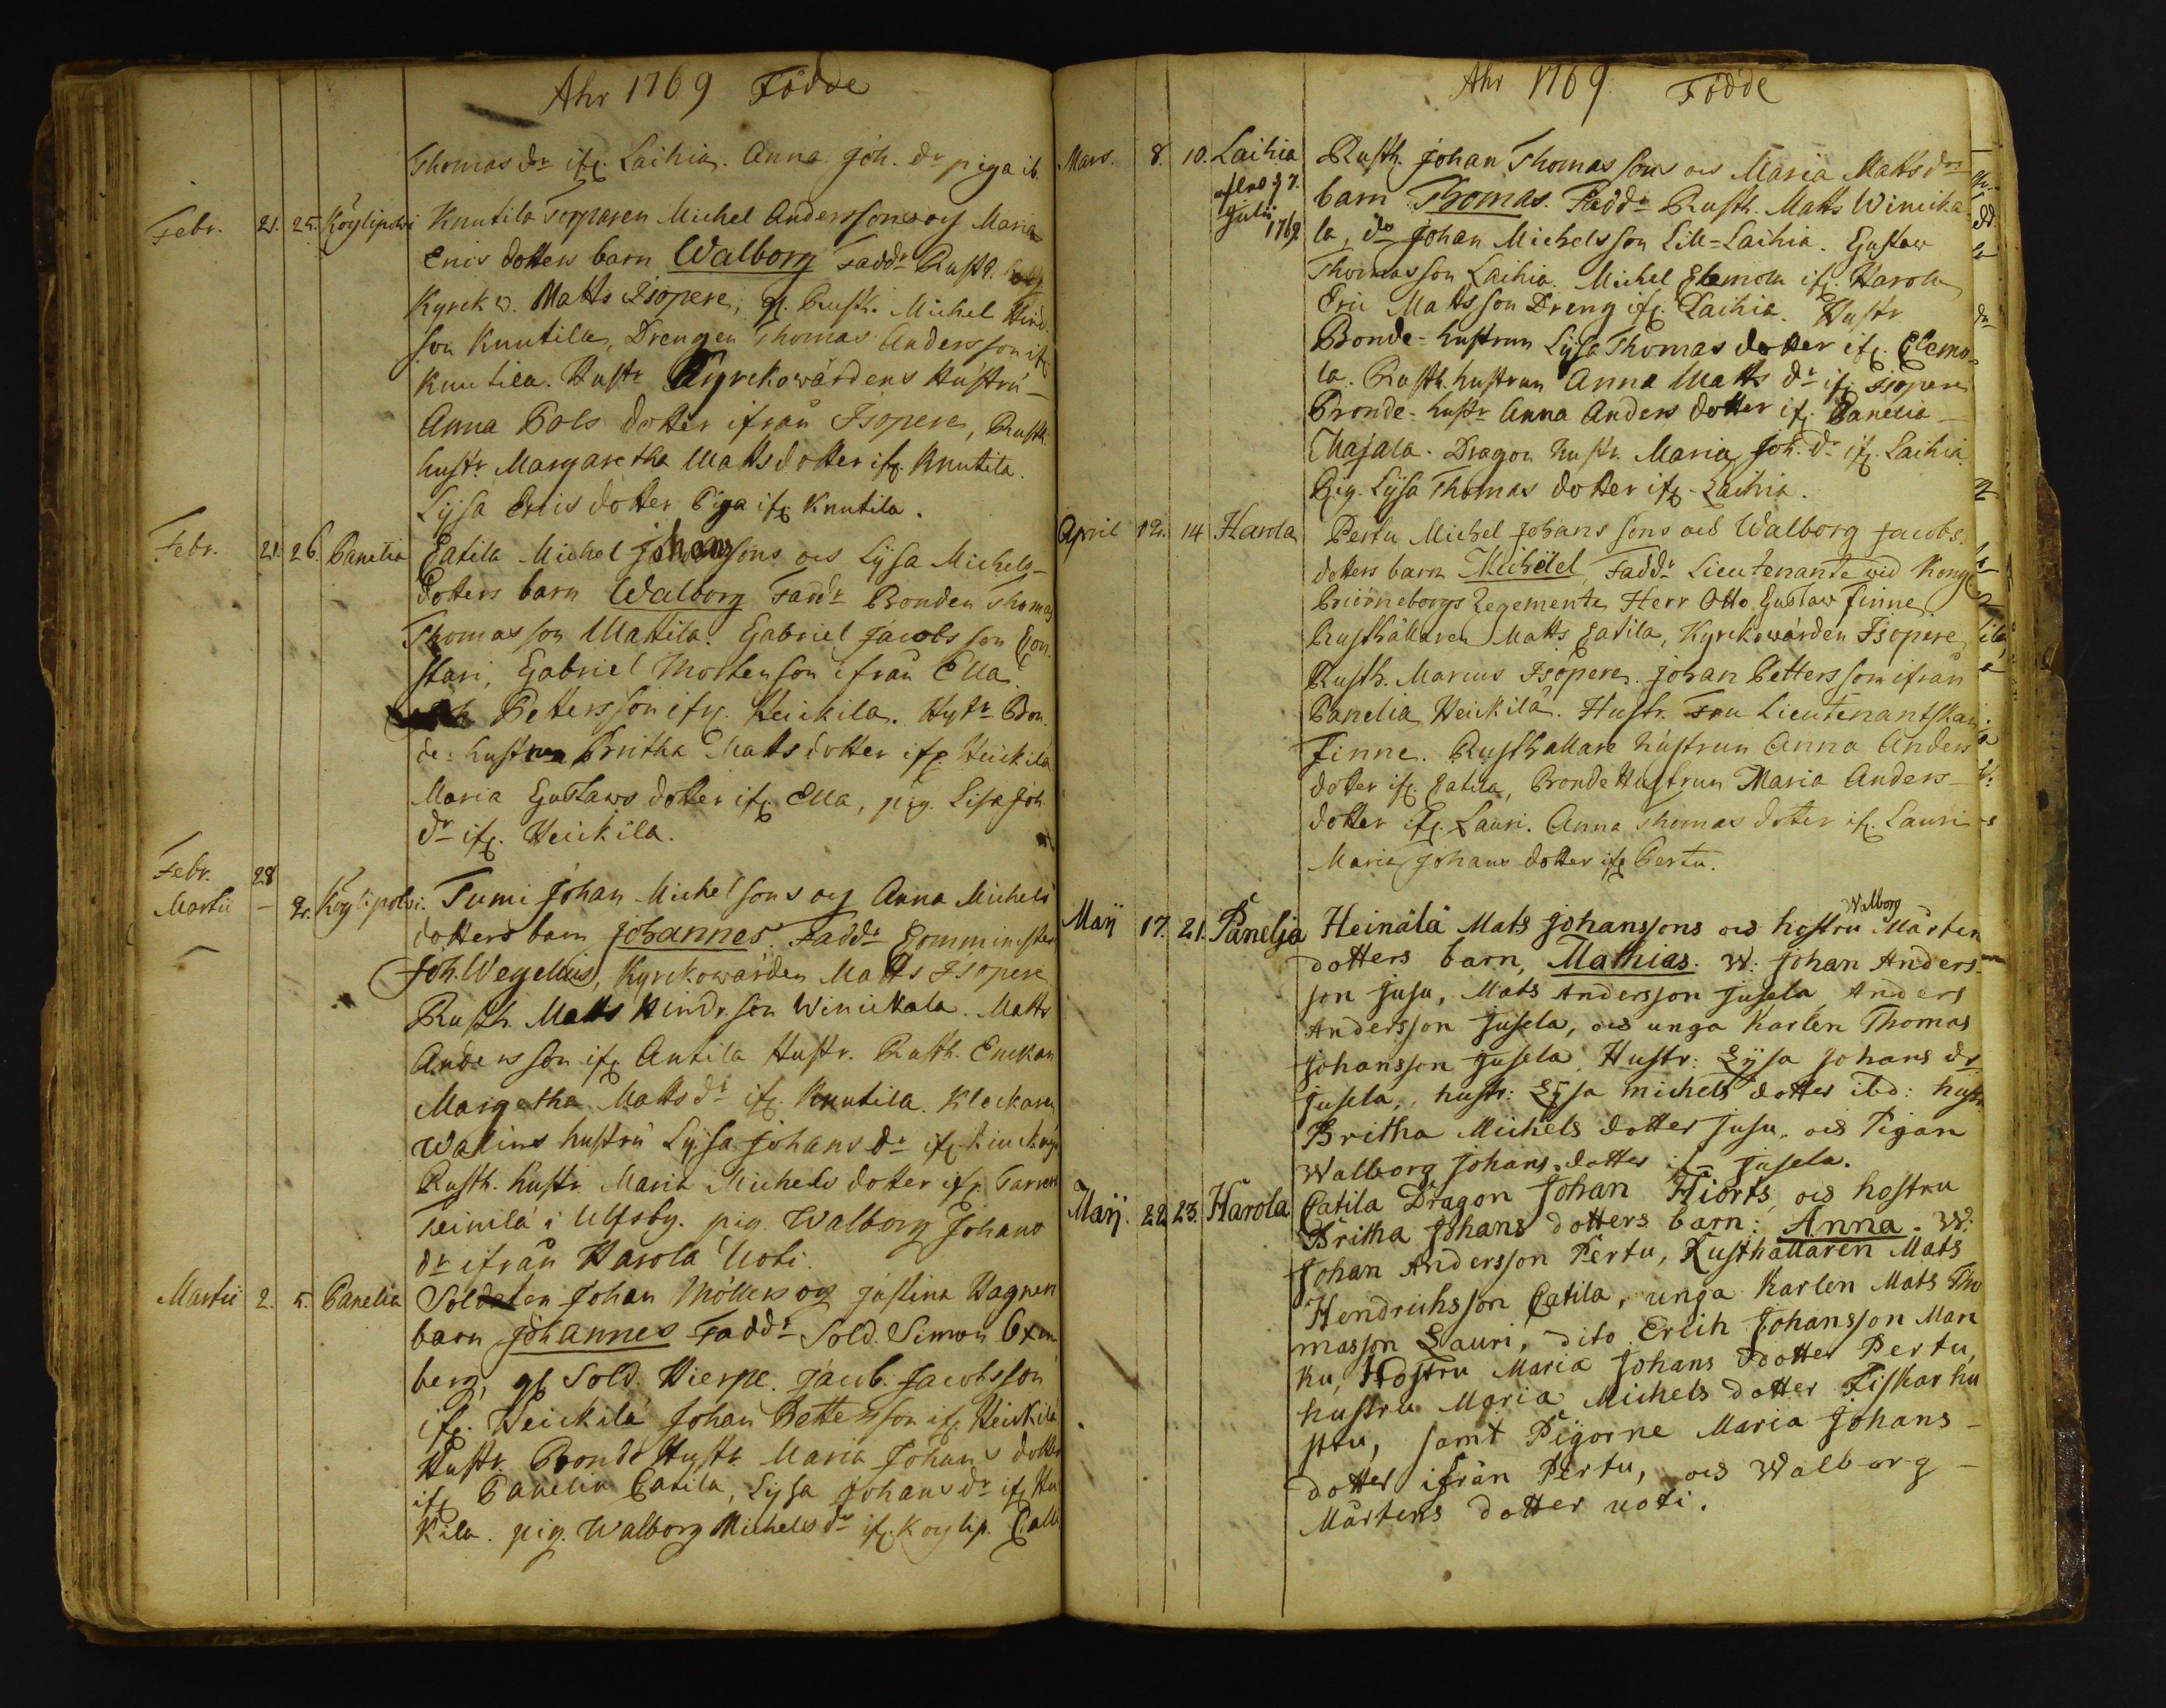 Ahr 1769 Födde
Thomas dr ifr. Laihia. Anna Joh. dr piga ib.
Febr. 21. 25. Köylipolvi Knutila Torparen Michel Anderssons och Maria
Erics dotters barn Walborg Faddr Rusth.
Kyrck w. Matts Isopere, Rusth. Michel Hind.
son Knutila, Drengen Thomas Andersson if.
Knutila. Hustr Kyrckowärdens Hustru
Anna Pols dotter ifrån Isopere, Rusth.
hustr. Margaretha Mattsdotter ifr. Knutila.
Lysa Erics dotter Piga ifr. Knutila.
Febr. 21. 26. Panelia Eatila Michel Johanssons och Lysa Michels-
dotters barn Walborg Faddr Bonden Thomas
Thomasson Mattila. Gabriel Jacobs son
stari, Gabriel Mortenson ifrån Ella.
Pettersson ifr. Heickilä. Hustr Bon.
de: hustrun Britha Matts dotter ifr. Heickilä
Maria Gustaws dotter ifr. Ella, pig. Lisa Joh.
dr ifr. Heickilä.
Febr. 28
Martii - 2. Köylipolvi. Tumi Johan Michelsons och Anna Michels
dotters barn Johannes. Faddr Comminister
Joh. Wegelius, Kyrckowärden Matts Isopere
Rusth. Matts Hindr. son Winickala. Matts
Andersson ifr. Antila Hustr. Rusth. Enckan
Margetha Matts dr ifr. Knutila. Klockaren
Walins hustru Lysa Johans dr ifr.
Rusth. hustr. Maria Michels dotter ifr.
i Ulfsby. pig. Walborg Johans
dr ifrån Harola Uoti.
Martii 2. 5. Panelia Soldaten Johan Möllers och Justina Hagren
barn Johannes Faddr Sold. Simon Oxen
berg, Sold. Hierpe. Jacob Jacobsson
ifr. Heickilä Johan Pettersson ifr. Heickilä
Hustr. Bonde Hustr. Maria Johans dotter
ifr. Panelia Eatila, Lysa Johans dr ifr. Hei
kila. pig. Walborg Michels dr ifr. Köylip.
Ahr 1769 Födde
Mars. 8. 10. Laihia Rusth. Johan Thomas sons och Maria Matts drs
7. Julii 1769. barn Thomas. Faddr Rusth. Matts Winicka
la, do Johan Michelsson Lill-Laihia. Gustaw
Thomasson Laihia. Michel Elemola ifr. Harola
Eric Mattsson Dreng ifr. Laihia. Hustr
Bonde-hustrun Lysa Thomas dotter ifr. Elemo-
la. Rusth. hustrun Anna Matts dr ifr. Isopere
Bonde-hustr Anna Anders dotter if. Panelia
Majala. Dragon hustr. Maria Joh. dr ifr. Laihia.
Pig. Lysa Thomas dotter ifr. Laihia.
April 12. 14 Harola Pertu Michel Johans sons och Walborg Jacobs.
dotters barn Michäel, Faddr Lieutenante wid Kongl
Biörneborgs Regemente Herr Otto Gustaw Finne.
Rusthållaren Matts Eatila, Kyrckowärden Isopere
Rusth. Marcus Isopere. Johan Pettersson ifrån
Panelia Heickilä. Hustr. Fru Lieutenantskan
Finne. Rusthållare hustrun Anna Anders
dotter ifr. Eatila, Bonde Hustrun Maria Anders-
dotter ifr. Lauri. Anna Thomas dotter ifr. Lauri
Maria Johans dotter ifr. Pertu.
Maij 17. 21. Panelja Heinälä Mats Johanssons och hustru Walborg Mårten
dotters barn, Mathias. W: Johan Anders-
son Jusu, Mats Andersson Jusela Anders
Andersson Jusela, och unga Karlen Thomas
Johansson Jusela. Hustr: Lysa Johans dr
Jusela, hustr: Lysa Michels dotter ibd: hustr.
Britha Michels dotter Jusu. och Pigan
Walborg Johans dotter if- Jusela.
Maij. 22 23 Harola Eatila Dragon Johan Hiorts, och hustru
Britha Johans dotters barn: Anna. W:
Johan Andersson Pertu, Rusthållaren Mats
Hendrichsson Eatila, unga Karlen Mats Tho
masson Lauri, dito Erich Johansson Man
ku, Hustru Maria Johans dotter Pertu,
hustru Maria Michels dotter Fiskar hu
stru, samt Pigorne Maria Johans-
dotter ifrån Pertu, och Walborg-
Mårtens dotter uoti.